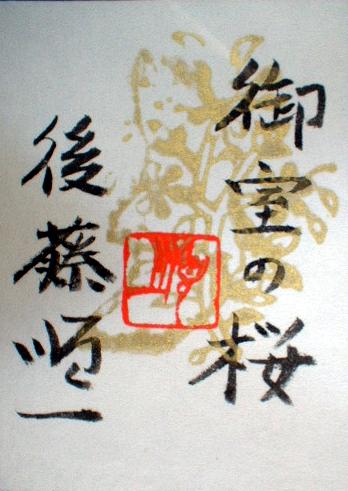 御室の桜
後藤順一